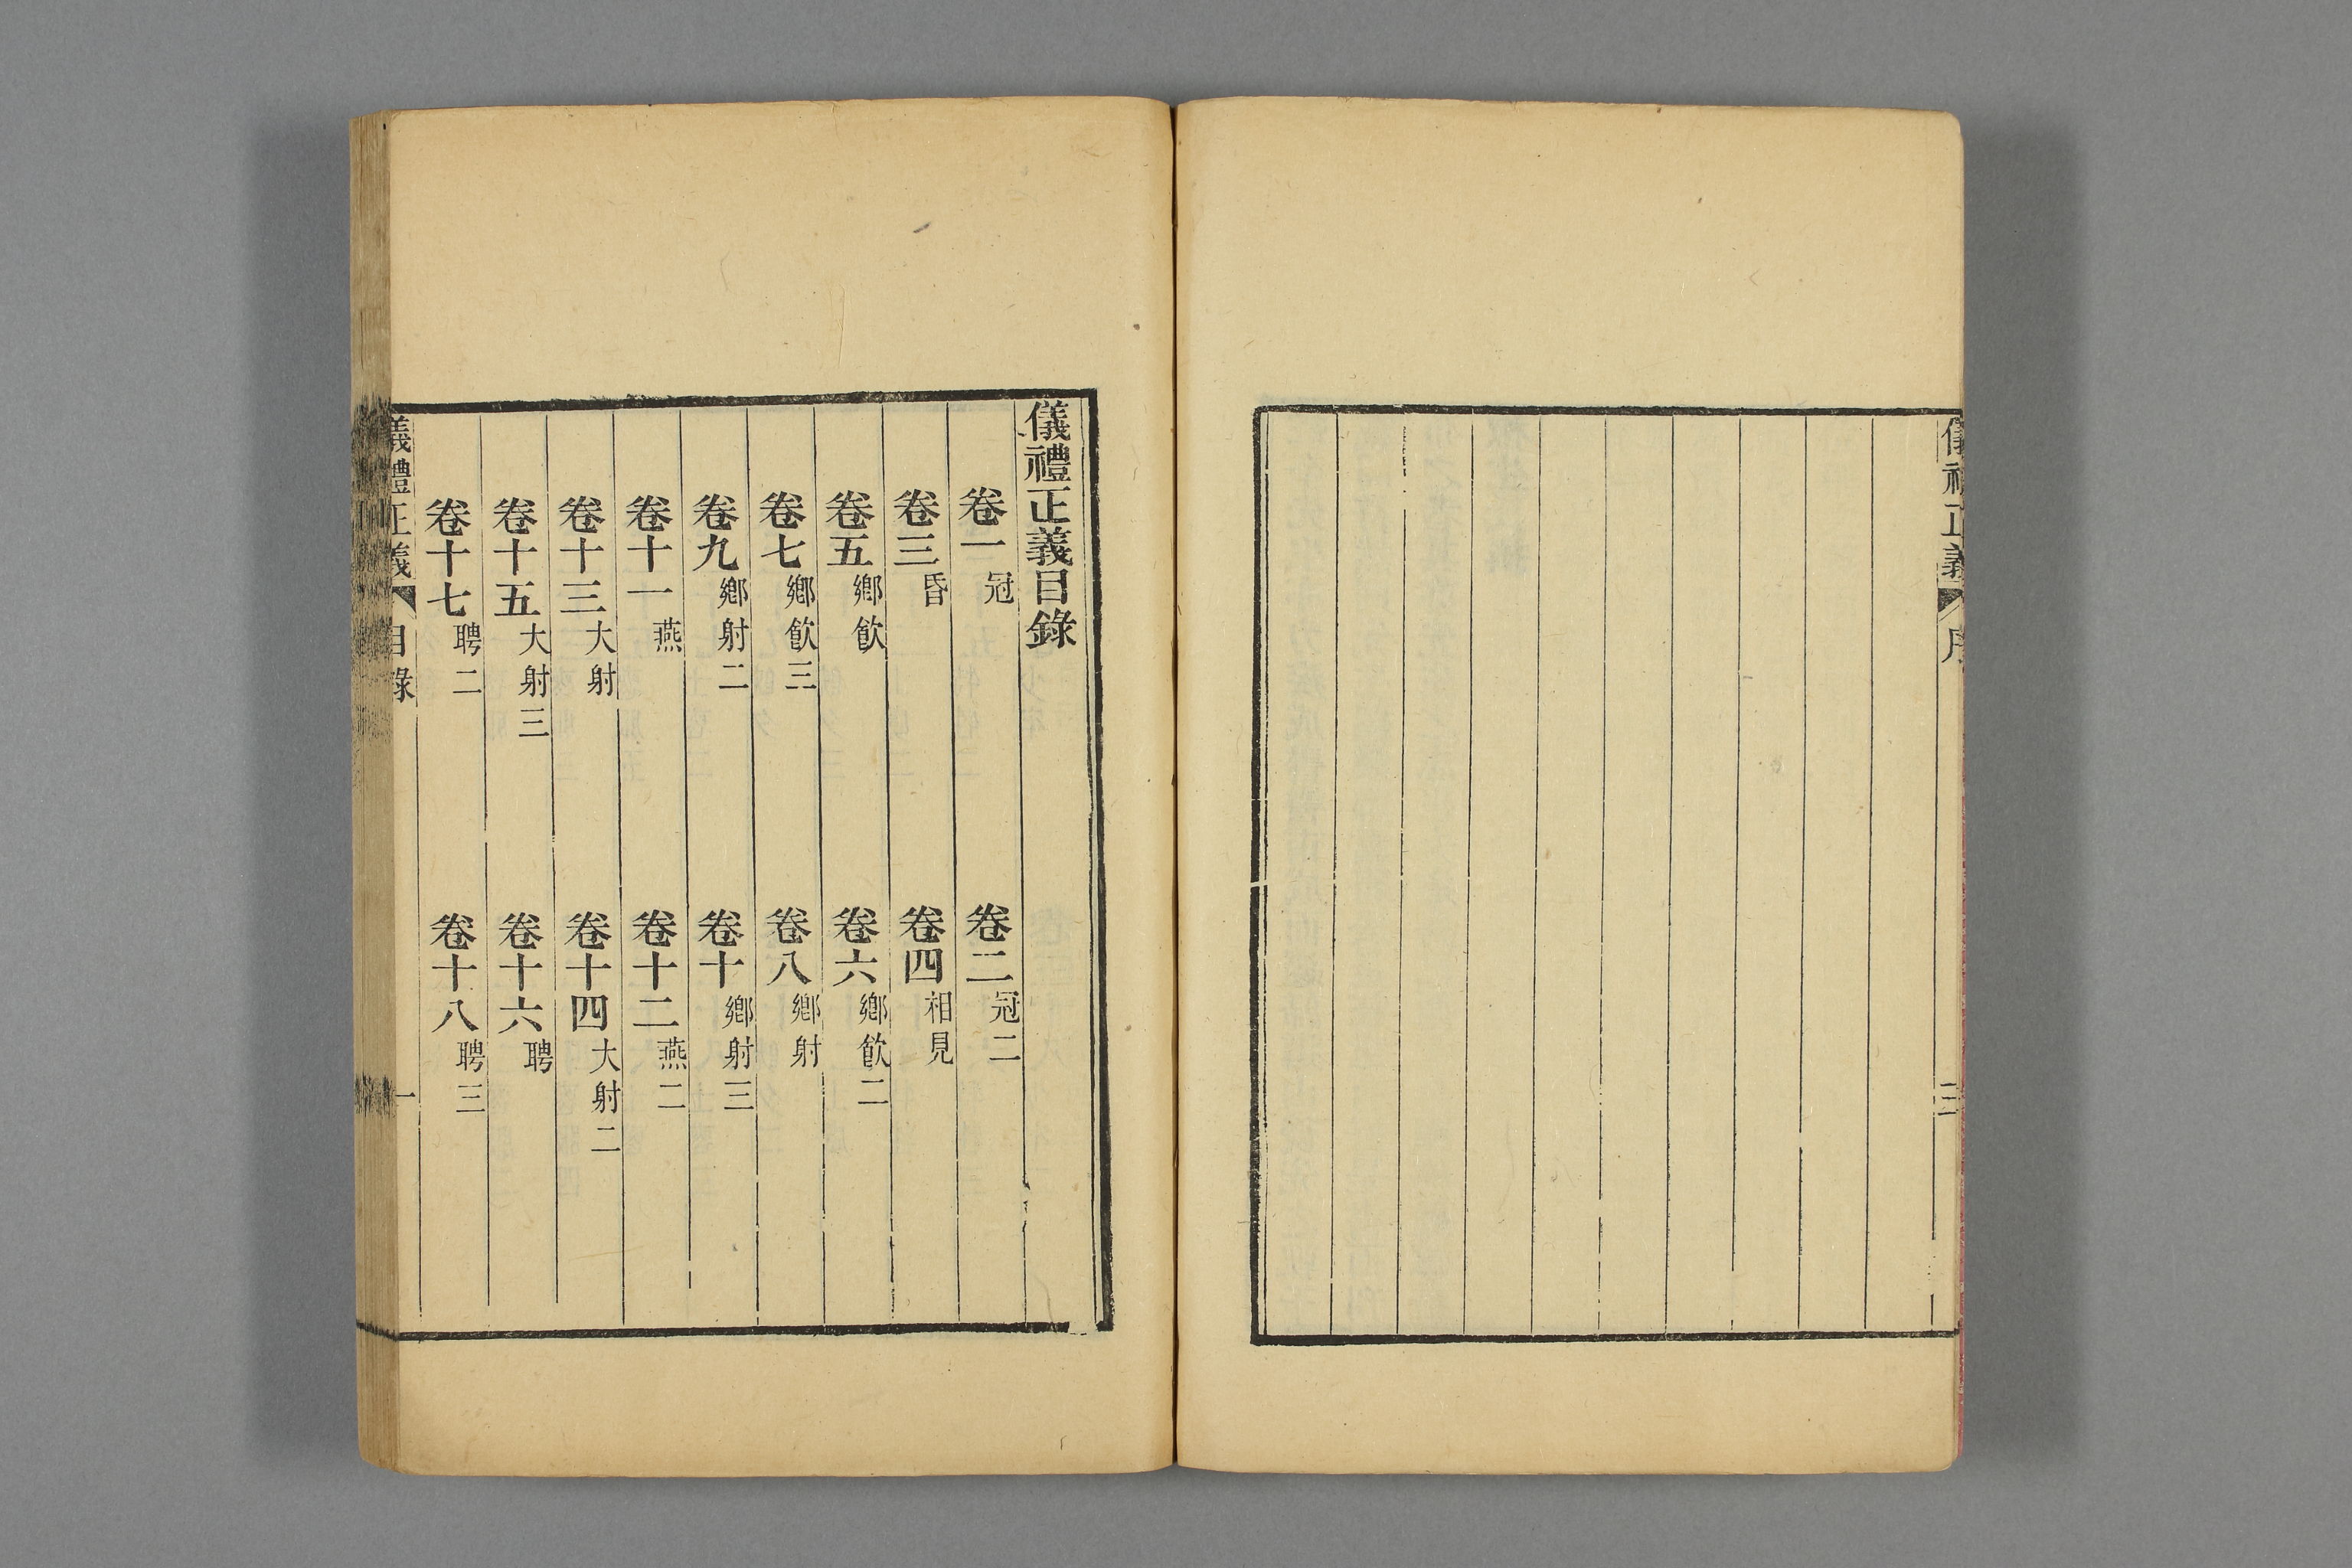 儀禮正義 序 三
儀禮正義目錄
卷一 冠 卷二 冠二
卷三 昏 卷四 相見
卷五 鄉飮 卷六 鄉飮二
卷七 鄉飮三 卷八 鄉射
卷九 鄉射二 卷十 鄉射三
卷十一 燕 卷十二 燕二
卷十三 大射 卷十四 大射二
卷十五 大射三 卷十六 聘
卷十七 聘二 卷十八 聘三
儀禮正義 目錄 一